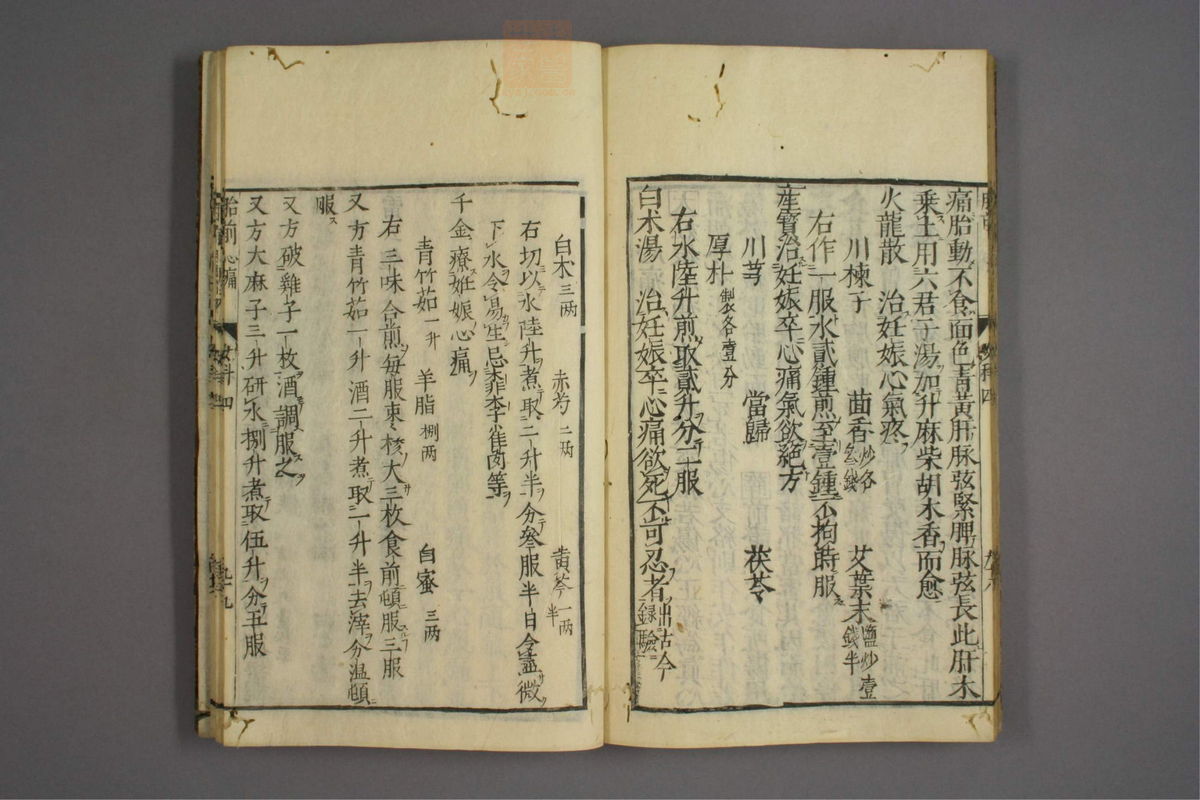 痛胎動不食面色青黃肝脉弦緊脾脉弦長此肝木
乗土用六君子湯加升麻柴胡木香而愈
火龍散　治妊娠心氣疼
川楝子　茴香炒各叁錢　艾葉末鹽炒壹錢半
右作一服水貳鍾煎至壹鍾不拘時服
産寶治妊娠卒心痛氣欲絕方
川芎　當歸　茯苓
厚朴製各壹分
右水陸升煎取貳升分二服
白朮湯　治妊娠卒心痛欲死不可忍者出古今録驗
白朮三兩　赤芍二兩　黃芩一兩半
右切以水陸升煮取二升半分叁服半日令盡微
下水令易生忌桃李雀肉等
千金療妊娠心痛
青竹茹一升　羊脂捌兩　白蜜三兩
右三味合煎毎服棗核大三枚食前頓服三服
又方青竹茹一升酒二升煮取一升半去滓分温頓
服
又方破雞子一枚酒調服之
又方大麻子三升研水捌升煮取伍升分五服
胎前心痛　女科四　九十九